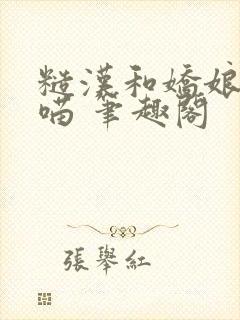 糙漢和嬌娘
喵 筆趣閣
張舉紅